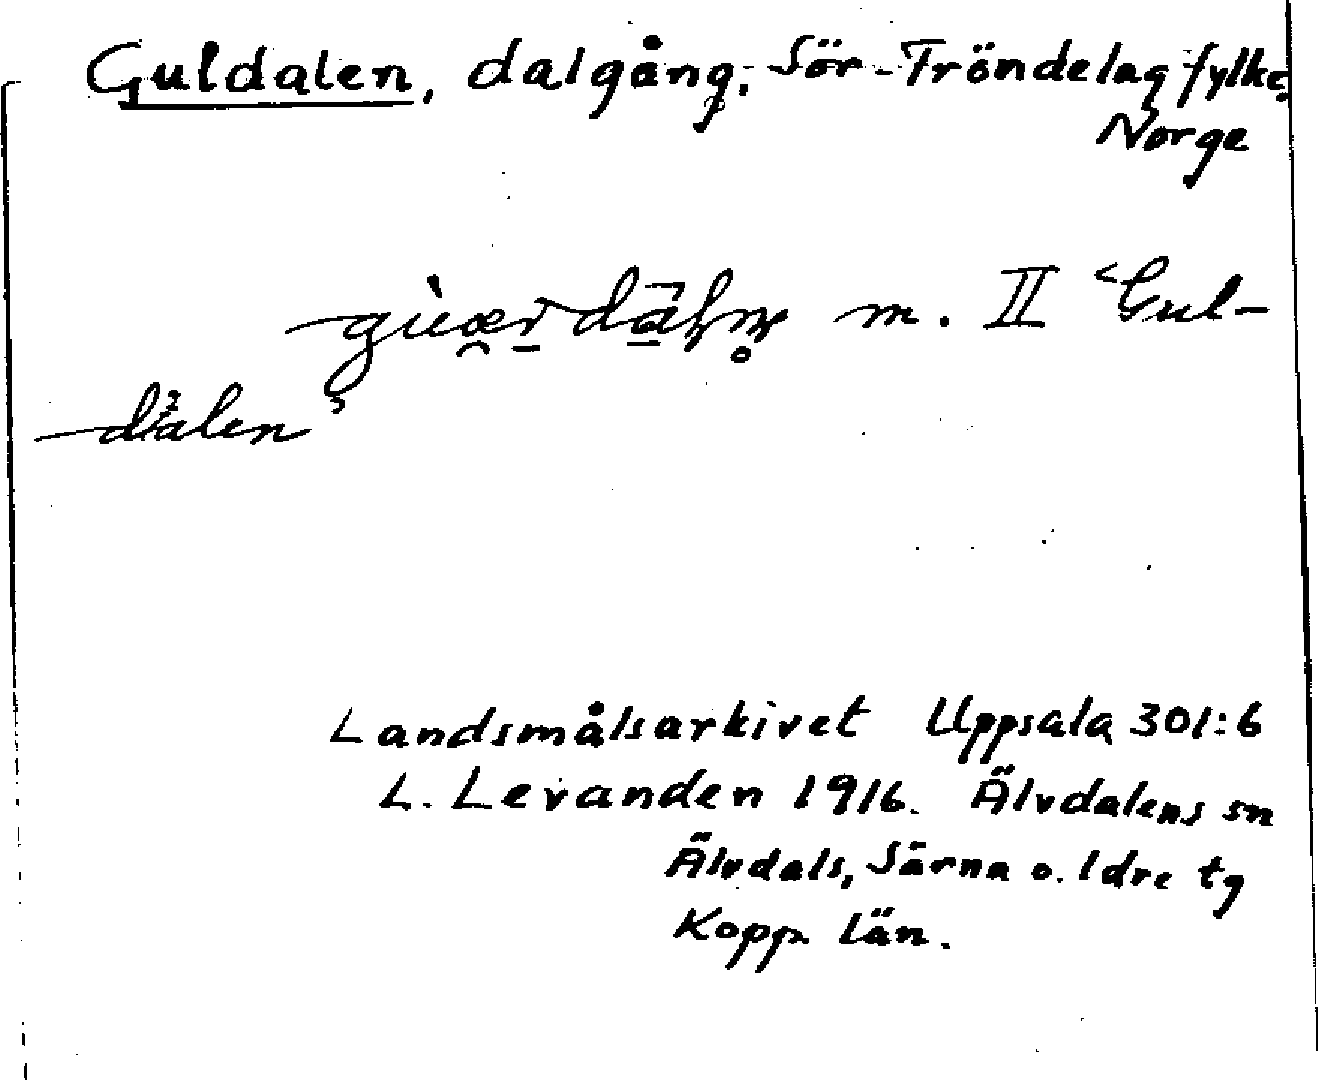 Guldalen, dalgång, Sör-Tröndelag fylke,
Norge
m. II "Gul-
dalen"
Landsmålsarkivet Uppsala 301:6
L. Levanden 1916. Älvdalens sn
Älvdals, Särna o. Idre tg
Kopp. län.